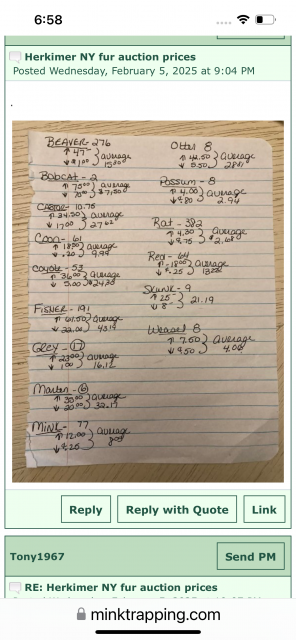 6:58
Herkimer NY fur auction prices
Posted Wednesday, February 5, 2025 at 9:04 PM
.
BEAVER - 276
↑ 47
↓ $1.00
average
Bobcat - 2
↑ 75.00
average
Castor - 10.75
↑ 34.50
average
↓ 17.00
Coon - 61
average
↓ .20 9.99
Coyote - 53
↑ 36.00 average
↓ 5.00 $24.30
FISHER - 191
↑ 61.50 average
↓ 22.00 43.19
Grey - 17
↑ 23.00 average
↓ 1.00 16.12
Marten - 6
average
↓ 20.00 32.17
MINK - 77
↑ 12.00 average
↓ $.25
Otter 8
↑ 42.50 average
↓ 5.50
Possum - 8
↑ 4.00 average
↓ $.80 2.94
Rat - 382
↑ 4.30 average
↓ $.75 $2.68
Red - 64
↑ 18.00 average
↓ $.25
Skunk - 9
↑ 25
↓ 8
21.19
Weasel 8
↑ 7.50 average
↓ $.50 4.00
Reply Reply with Quote Link
Tony1967 Send PM
RE: Herkimer NY fur auction prices
minktrapping.com